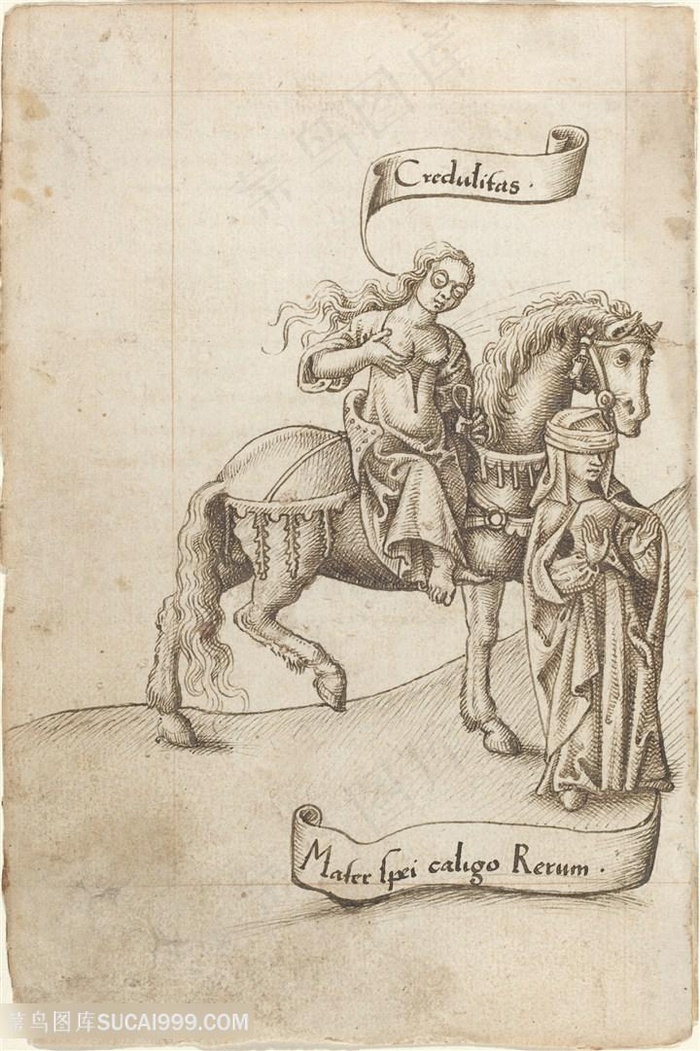 Credulitas·
Mater spei caligo Rerum·
菜鸟图库SUCAI999.COM